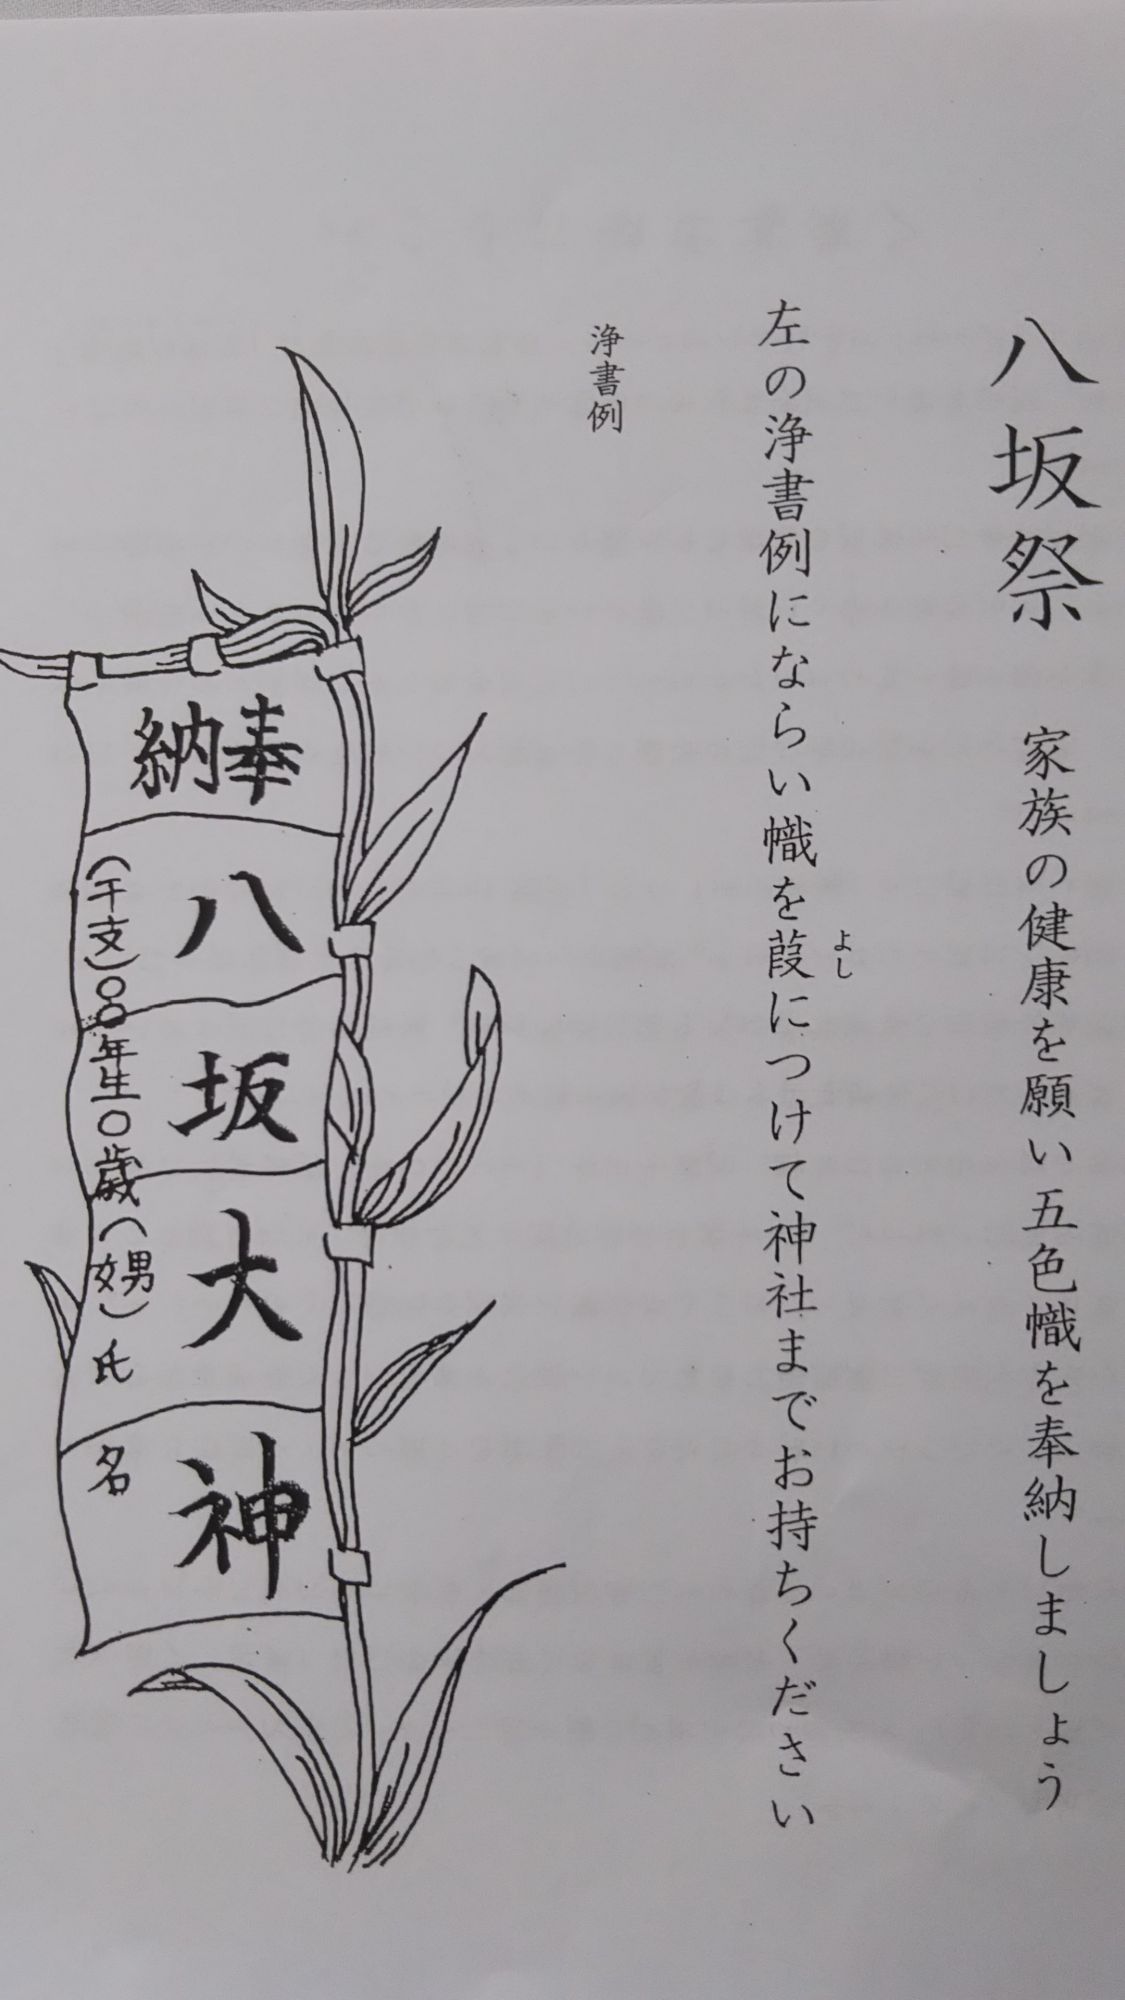 八坂祭 家族の健康を願い五色幟を奉納しましょう
左の浄書例にならい幟を葭につけて神社までお持ちください
よし
浄書例
奉納
八坂大神
(干支)〇〇年生〇歳(男女)氏名